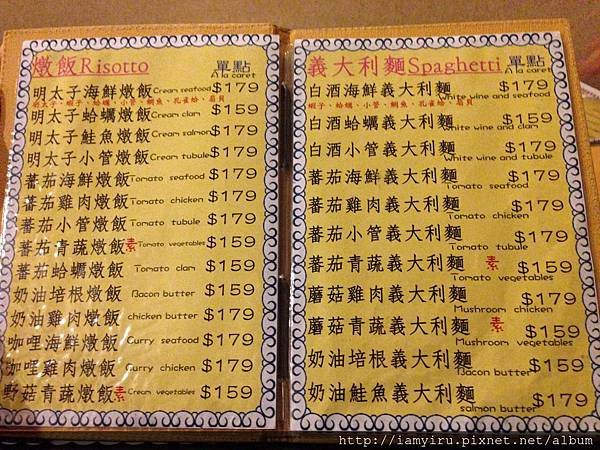 燉飯Risotto 單點
A la caret
明太子海鮮燉飯 Cream seafood $179
明太子、蝦子、蛤蠣、小管、鯛魚、孔雀蛤、扇貝
明太子蛤蠣燉飯 Cream clam $159
明太子鮭魚燉飯 Cream salmon $179
明太子小管燉飯 Cream tubule $179
蕃茄海鮮燉飯 Tomato seafood $179
蕃茄雞肉燉飯 Tomato chicken $179
蕃茄小管燉飯 Tomato tubule $179
蕃茄青蔬燉飯 素 Tomato vegetables $159
蕃茄蛤蠣燉飯 Tomato clam $159
奶油培根燉飯 Bacon butter $159
奶油雞肉燉飯 chicken butter $179
咖哩海鮮燉飯 Curry seafood $179
咖哩雞肉燉飯 Curry chicken $179
野菇青蔬燉飯 素 Cream vegetables $159
義大利麵Spaghetti 單點
A la caret
白酒海鮮義大利麵 $179
White wine and seafood
蝦子、蛤蠣、小管、鯛魚、孔雀蛤、扇貝
白酒蛤蠣義大利麵 $159
White wine and clam
白酒小管義大利麵 $179
White wine and tubule
蕃茄海鮮義大利麵 $179
Tomato seafood
蕃茄雞肉義大利麵 $179
Tomato chicken
蕃茄小管義大利麵 $179
Tomato tubule
蕃茄青蔬義大利麵 素 $159
Tomato vegetables
蘑菇雞肉義大利麵 $179
Mushroom chicken
蘑菇青蔬義大利麵 素 $159
Mushroom vegetables
奶油培根義大利麵 $159
Bacon butter
奶油鮭魚義大利麵 $179
salmon butter
http://iamyiru.pixnet.net/album